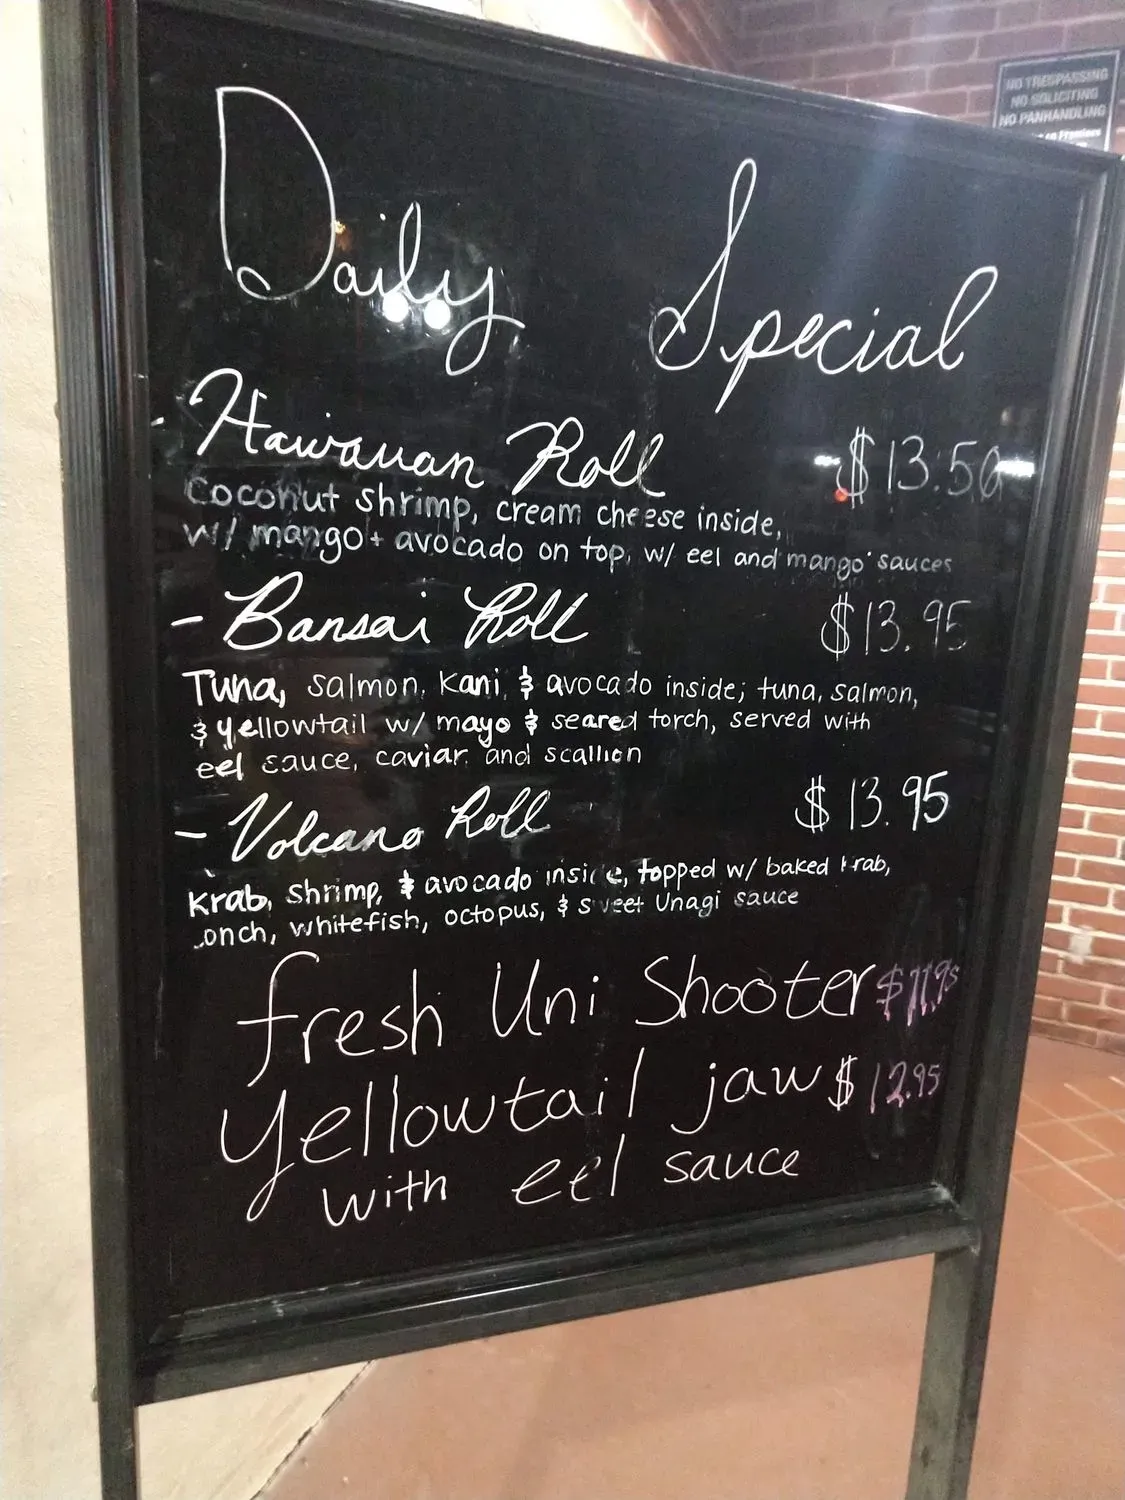 NO TRESPASSING
NO SOLICITING
NO PANHANDLING
on Premises
Daily Special
- Hawaiian Roll $13.50
Coconut shrimp, cream cheese inside,
w/ mango + avocado on top, w/ eel and mango sauces
- Bansai Roll $13.95
Tuna, salmon, Kani, & avocado inside; tuna, salmon,
& yellowtail w/ mayo & seared torch, served with
eel sauce, caviar and scallion
- Volcano Roll $13.95
Krab, shrimp, & avocado inside, topped w/ baked krab,
conch, whitefish, octopus, & sweet Unagi sauce
fresh Uni Shooter $11.95
Yellowtail jaw $12.95
with eel sauce